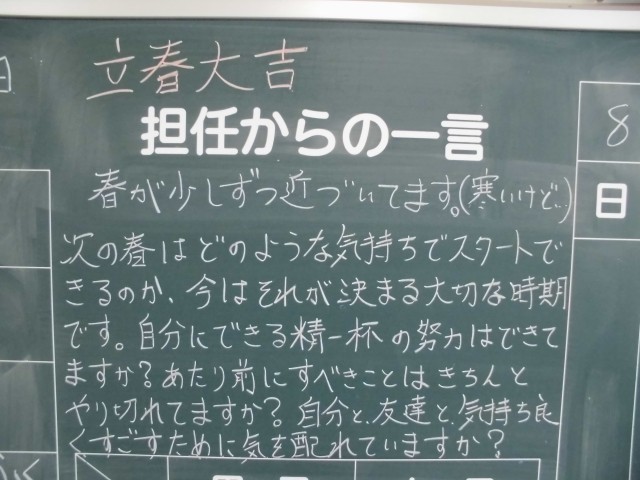 立春大吉
担任からの一言
春が少しずつ近づいてます。(寒いけど…)
次の春はどのような気持ちでスタートで
きるのか、今はそれが決まる大切な時期
です。自分にできる精一杯の努力はできて
ますか?あたり前にすべきことはきちんと
やり切れてますか?自分と、友達と、気持ち良
くすごすために気を配れていますか?
8
日